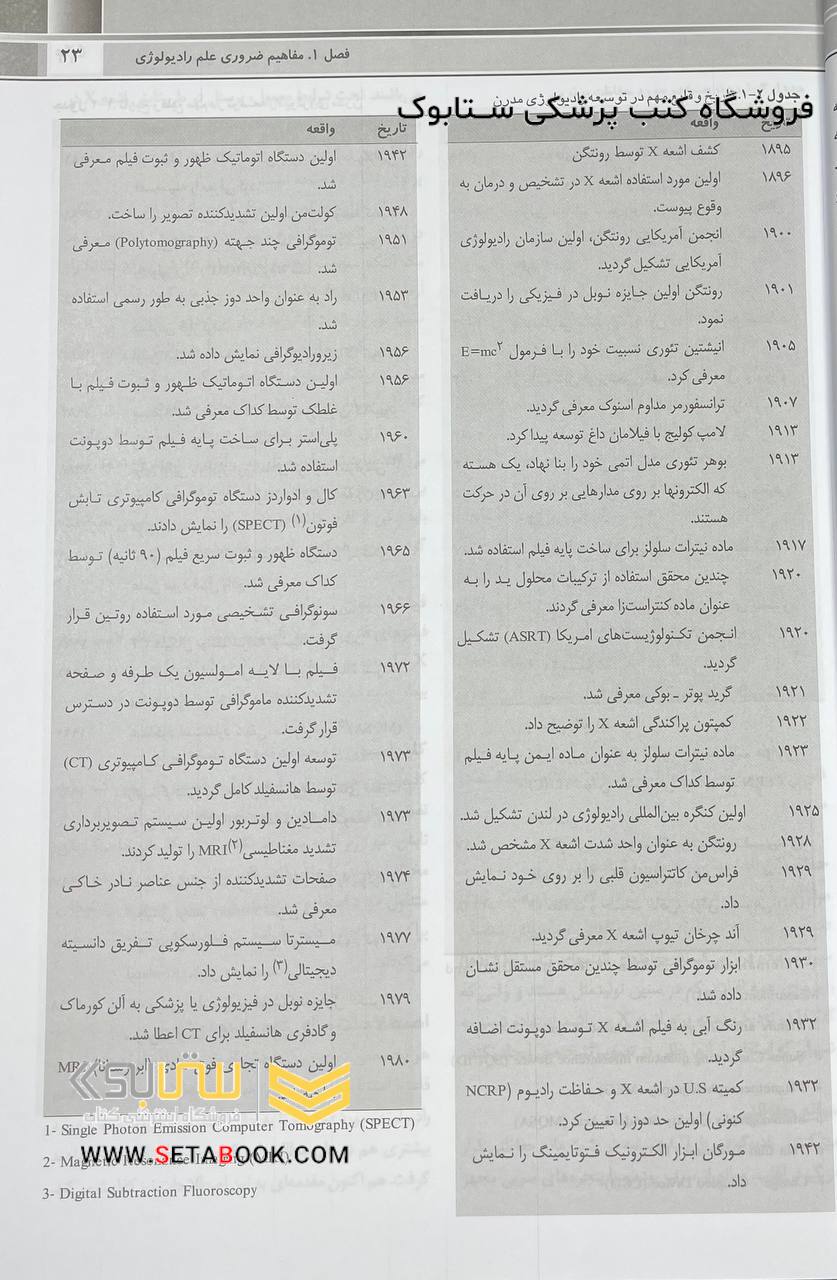 ۲۳
فصل ۱. مفاهیم ضروری علم رادیولوژی
جدول ۲-۱. تاریخ وقایع مهم در توسعه رادیولوژی مدرن
فروشگاه کتب پزشکی ستابوک
تاریخ واقعه
۱۸۹۵ کشف اشعه X توسط رونتگن
۱۸۹۶ اولین مورد استفاده اشعه X در تشخیص و درمان به
وقوع پیوست.
۱۹۰۰ انجمن آمریکایی رونتگن، اولین سازمان رادیولوژی
آمریکایی تشکیل گردید.
۱۹۰۱ رونتگن اولین جایزه نوبل در فیزیکی را دریافت
نمود.
۱۹۰۵ انیشتین تئوری نسبیت خود را با فرمول E=mc۲
معرفی کرد.
۱۹۰۷ ترانسفورمر مداوم اسنوک معرفی گردید.
۱۹۱۳ لامپ کولیج با فیلامان داغ توسعه پیدا کرد.
۱۹۱۳ بوهر تئوری مدل اتمی خود را بنا نهاد، یک هسته
که الکترونها بر روی مدارهایی بر روی آن در حرکت
هستند.
۱۹۱۷ ماده نیترات سلولز برای ساخت پایه فیلم استفاده شد.
۱۹۲۰ چندین محقق استفاده از ترکیبات محلول ید را به
عنوان ماده کنتراست‌زا معرفی گردند.
۱۹۲۰ انجمن تکنولوژیست‌های امریکا (ASRT) تشکیل
گردید.
۱۹۲۱ گرید پوتر ـ بوکی معرفی شد.
۱۹۲۲ کمپتون پراکندگی اشعه X را توضیح داد.
۱۹۲۳ ماده نیترات سلولز به عنوان ماده ایمن پایه فیلم
توسط کداک معرفی شد.
۱۹۲۵ اولین کنگره بین‌المللی رادیولوژی در لندن تشکیل شد.
۱۹۲۸ رونتگن به عنوان واحد شدت اشعه X مشخص شد.
۱۹۲۹ فراس‌من کاتتراسیون قلبی را بر روی خود نمایش
داد.
۱۹۲۹ آند چرخان تیوپ اشعه X معرفی گردید.
۱۹۳۰ ابزار توموگرافی توسط چندین محقق مستقل نشان
داده شد.
۱۹۳۲ رنگ آبی به فیلم اشعه X توسط دوپونت اضافه
گردید.
۱۹۳۲ کمیته U.S در اشعه X و حفاظت رادیوم (NCRP
کنونی) اولین حد دوز را تعیین کرد.
۱۹۴۲ مورگان ابزار الکترونیک فتوتایمینگ را نمایش
داد.
تاریخ واقعه
۱۹۴۲ اولین دستگاه اتوماتیک ظهور و ثبوت فیلم معرفی
شد.
۱۹۴۸ کولت‌من اولین تشدیدکننده تصویر را ساخت.
۱۹۵۱ توموگرافی چند جهته (Polytomography) معرفی
شد.
۱۹۵۳ راد به عنوان واحد دوز جذبی به طور رسمی استفاده
شد.
۱۹۵۶ زیرورادیوگرافی نمایش داده شد.
۱۹۵۶ اولین دستگاه اتوماتیک ظهور و ثبوت فیلم با
غلطک توسط کداک معرفی شد.
۱۹۶۰ پلی‌استر برای ساخت پایه فیلم توسط دوپونت
استفاده شد.
۱۹۶۳ کال و ادواردز دستگاه توموگرافی کامپیوتری تابش
فوتون(۱) (SPECT) را نمایش دادند.
۱۹۶۵ دستگاه ظهور و ثبوت سریع فیلم (۹۰ ثانیه) توسط
کداک معرفی شد.
۱۹۶۶ سونوگرافی تشخیصی مورد استفاده روتین قرار
گرفت.
۱۹۷۲ فیلم با لایه امولسیون یک طرفه و صفحه
تشدیدکننده ماموگرافی توسط دوپونت در دسترس
قرار گرفت.
۱۹۷۳ توسعه اولین دستگاه توموگرافی کامپیوتری (CT)
توسط هانسفیلد کامل گردید.
۱۹۷۳ دامادین و لوتربور اولین سیستم تصویربرداری
تشدید مغناطیسی(۲)MRI را تولید کردند.
۱۹۷۴ صفحات تشدیدکننده از جنس عناصر نادر خاکی
معرفی شد.
۱۹۷۷ میسترتا سیستم فلورسکوپی تفریق دانسیته
دیجیتالی(۳) را نمایش داد.
۱۹۷۹ جایزه نوبل در فیزیولوژی یا پزشکی به آلن کورماک
و گادفری هانسفیلد برای CT اعطا شد.
۱۹۸۰ اولین دستگاه تجاری فوق
ستابوک
فروشگاه اینترنتی کتاب
1- Single Photon Emission Computer Tomography (SPECT)
WWW.SETABOOK.COM
2- Magnetic Resonance
3- Digital Subtraction Fluoroscopy